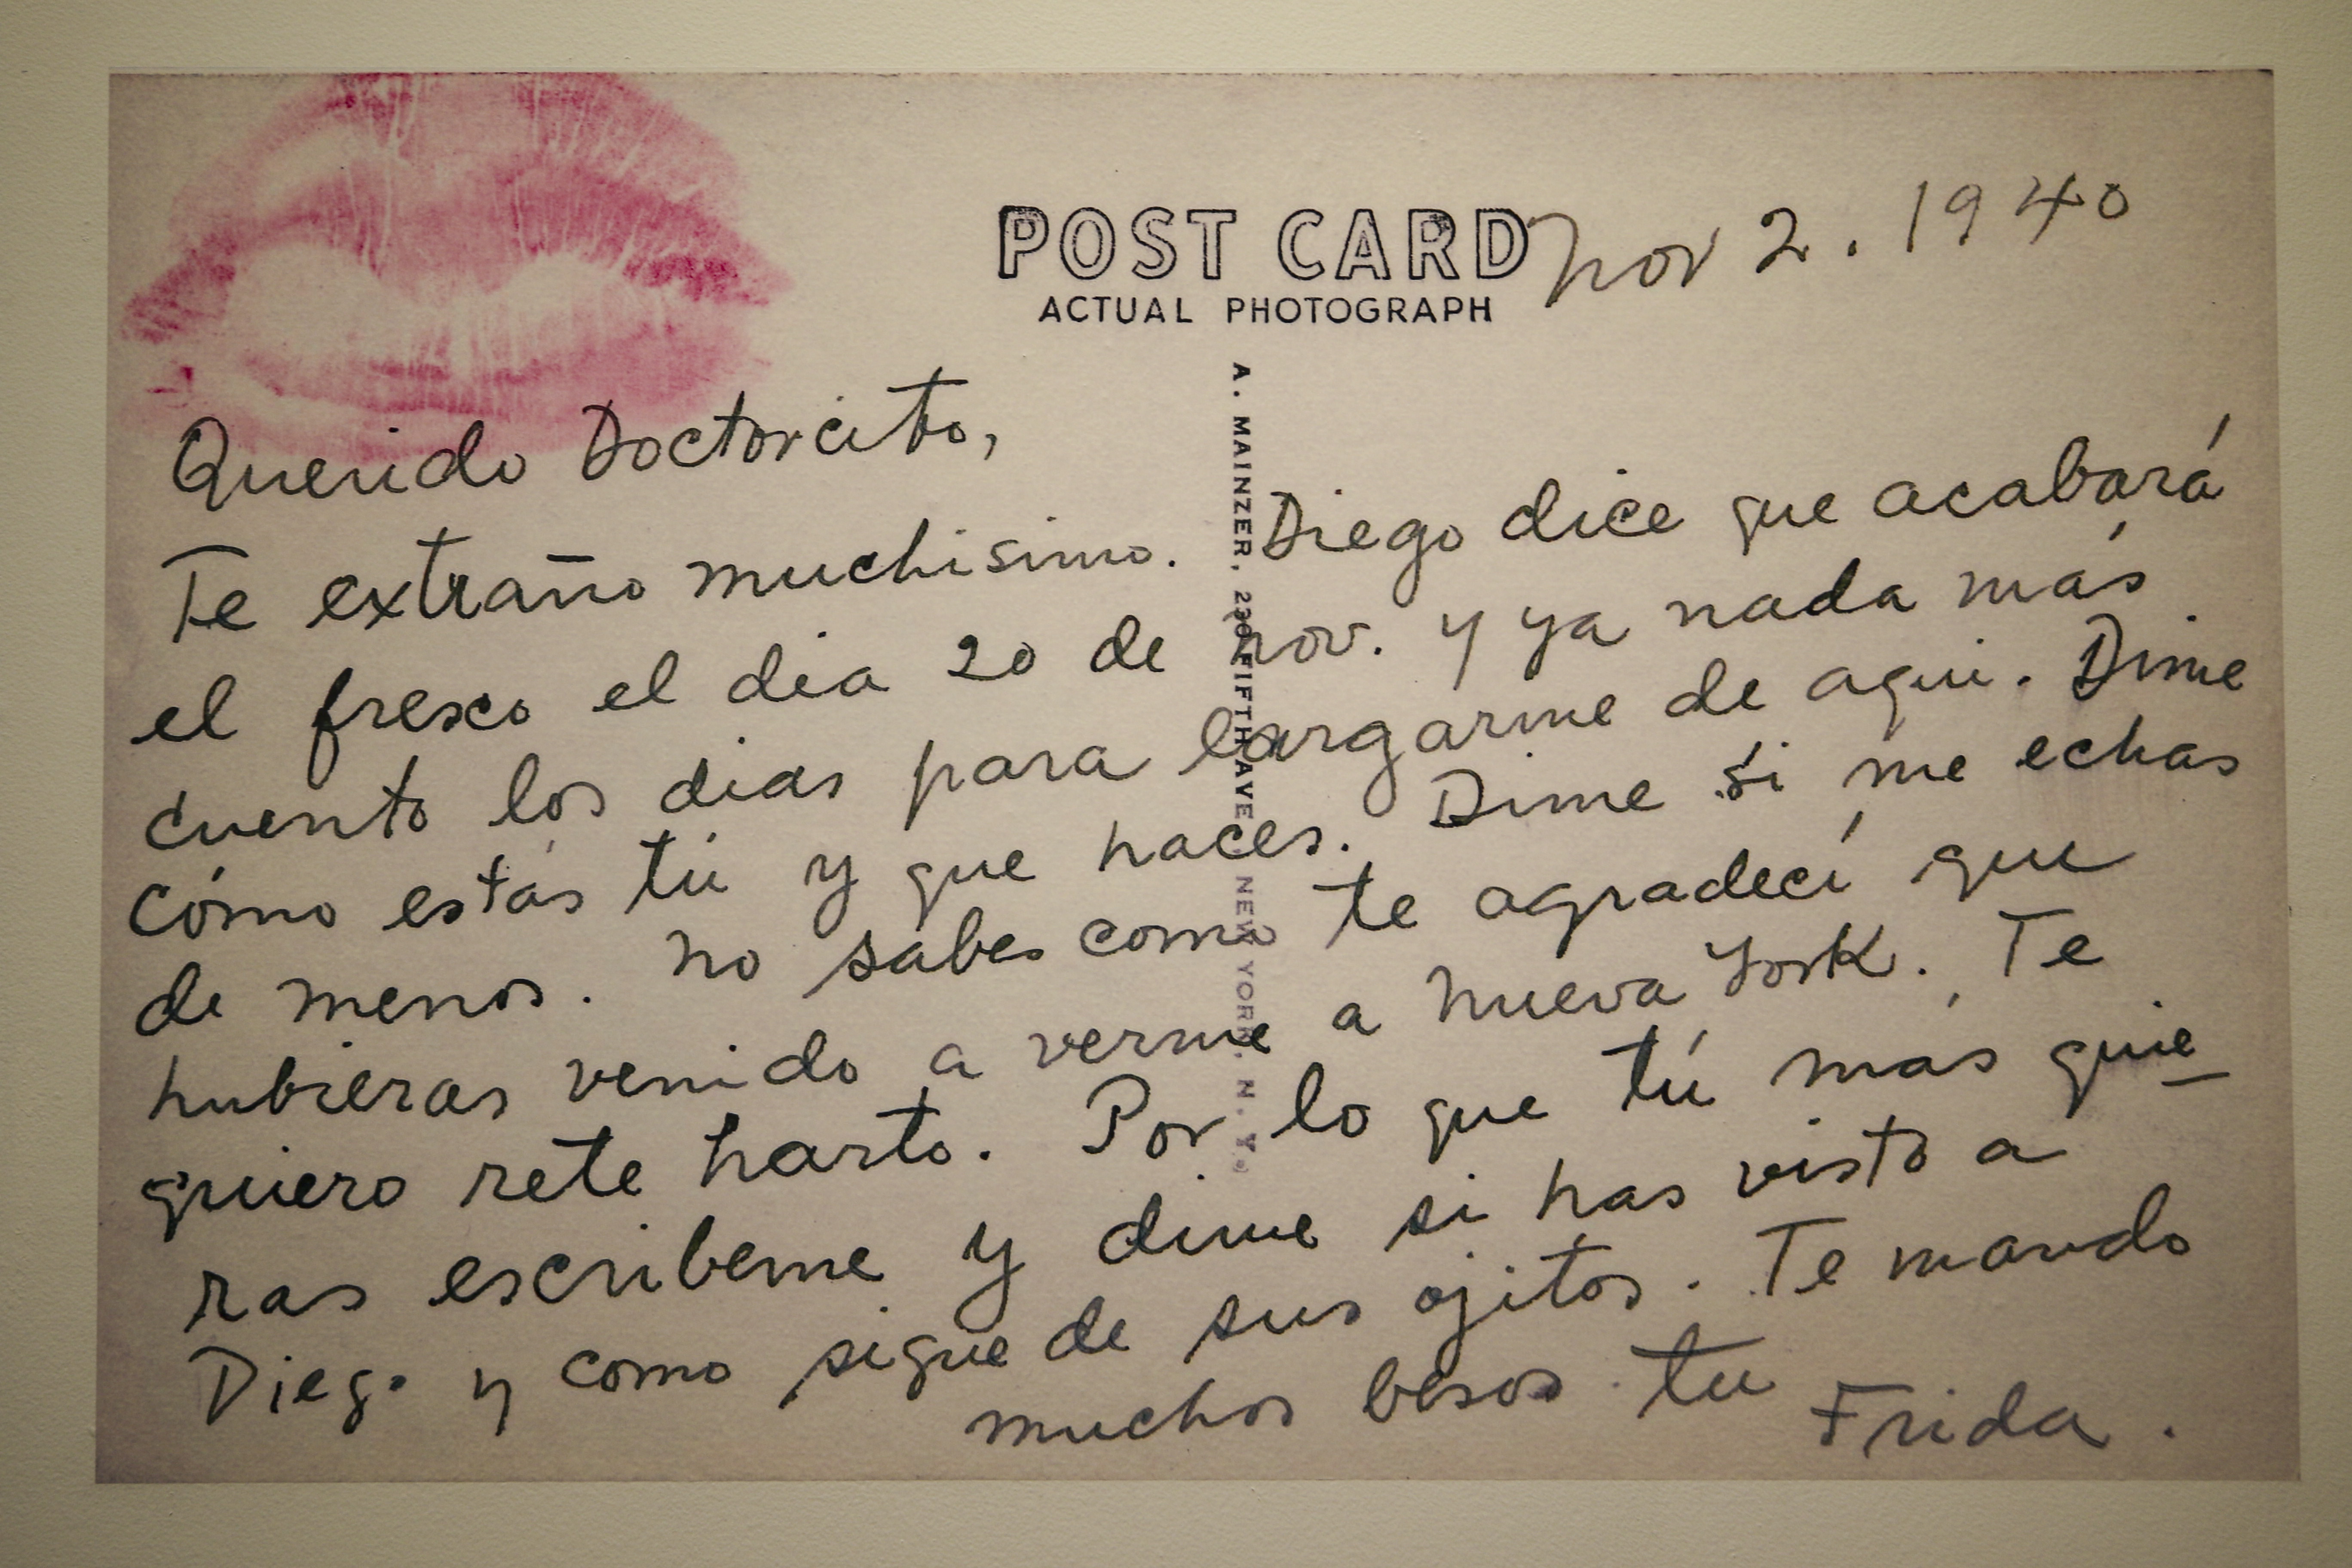 POST CARD
ACTUAL PHOTOGRAPH
Nov 2. 1940
A. MAINZER, 230 FIFTH AVE. NEW YORK, N. Y.
Querido Doctorcito,
Te extraño muchisimo. Diego dice que acabará
el fresco el dia 20 de nov. y ya nada más
cuento los dias para largarme de aqui. Dime
cómo estás tú y que haces. Dime si me echas
de menos. no sabes como te agradecí que
hubieras venido a verme a Nueva York. Te
quiero rete harto. Por lo que tú más quie
ras escribeme y dime si has visto a
Diego y como sigue de sus ojitos. Te mando
muchos besos tu Frida.